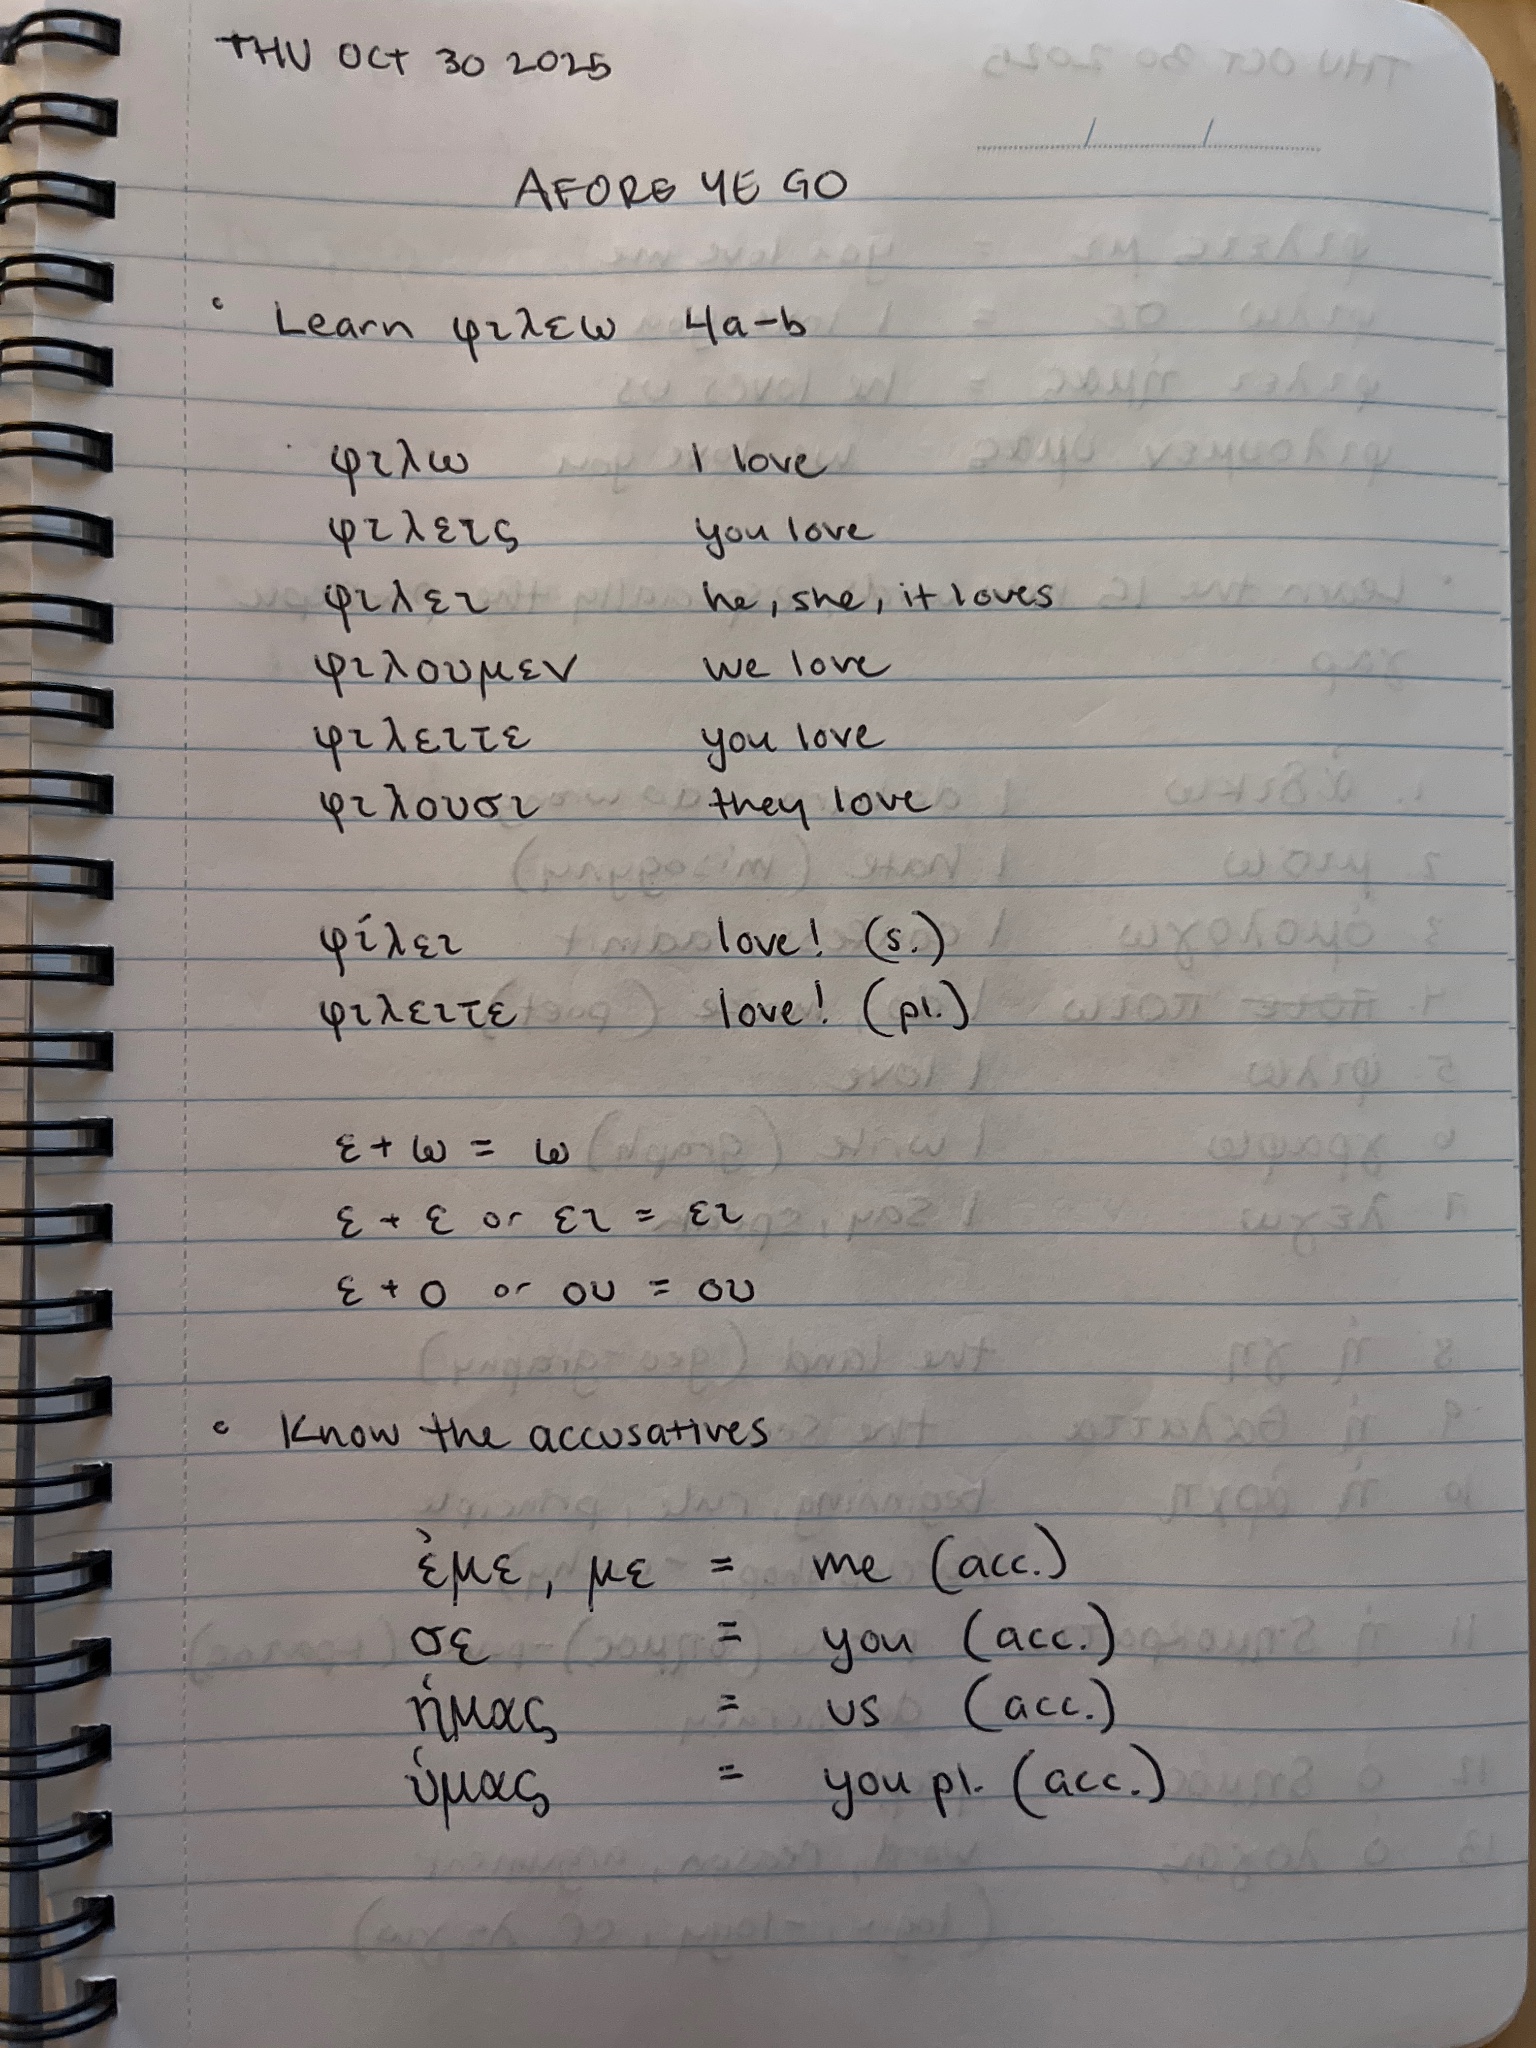 THU OCT 30 2025
AFORE YE GO
• Learn φιλεω 4a-b
φιλω I love
φιλεις you love
φιλει he, she, it loves
φιλουμεν we love
φιλειτε you love
φιλουσι they love
φίλει love! (s.)
φιλειτε love! (pl.)
ε + ω = ω
ε + ε or ει = ει
ε + ο or ου = ου
• Know the accusatives
ἐμε, με = me (acc.)
σε = you (acc.)
ἡμας = us (acc.)
ὑμας = you pl. (acc.)